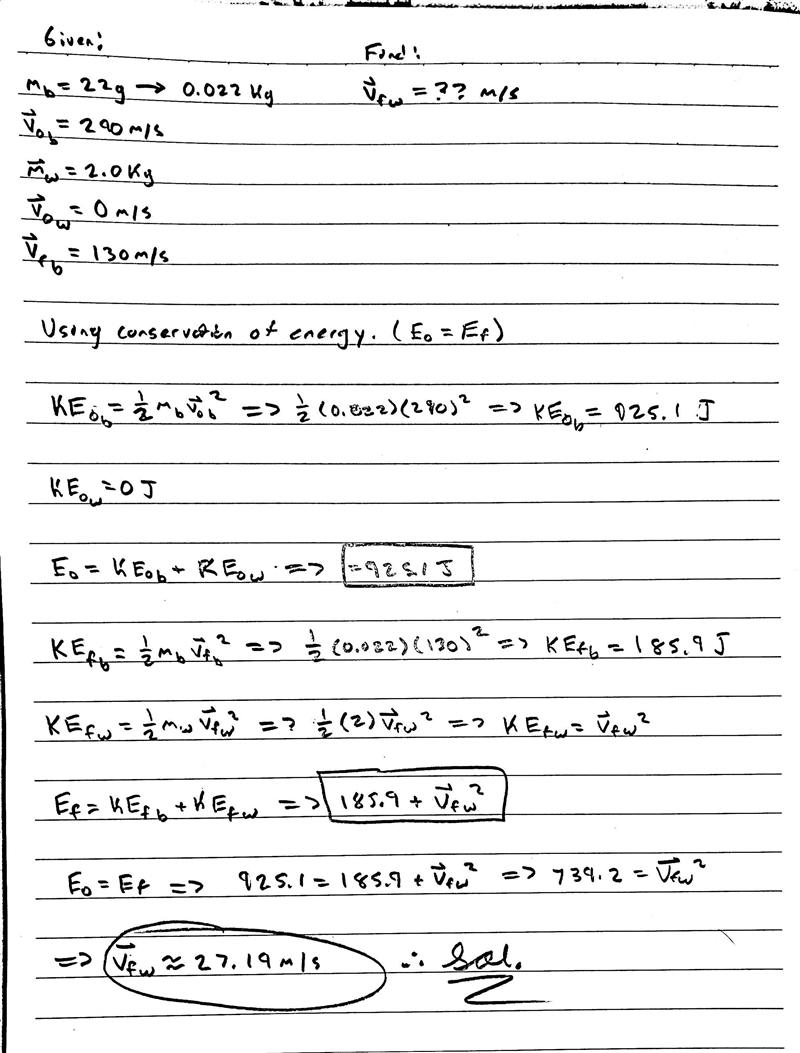 Given: Find:
m_b = 22g → 0.022 Kg V⃗_fw = ?? m/s
V⃗_ob = 290 m/s
m⃗_w = 2.0 Kg
V⃗_ow = 0 m/s
V⃗_fb = 130 m/s
Using conservation of energy. (E₀ = E_f)
KE_ob = ½ m_b v⃗_ob² => ½ (0.022)(290)² => KE_ob = 925.1 J
KE_ow = 0 J
E₀ = KE_ob + KE_ow => = 925.1 J
KE_fb = ½ m_b v⃗_fb² => ½ (0.022)(130)² => KE_fb = 185.9 J
KE_fw = ½ m_w v⃗_fw² => ½ (2) v⃗_fw² => KE_fw = v⃗_fw²
E_f = KE_fb + KE_fw => 185.9 + v⃗_fw²
E₀ = E_f => 925.1 = 185.9 + v⃗_fw² => 739.2 = v⃗_fw²
=> v⃗_fw ≈ 27.19 m/s ∴ Sol.